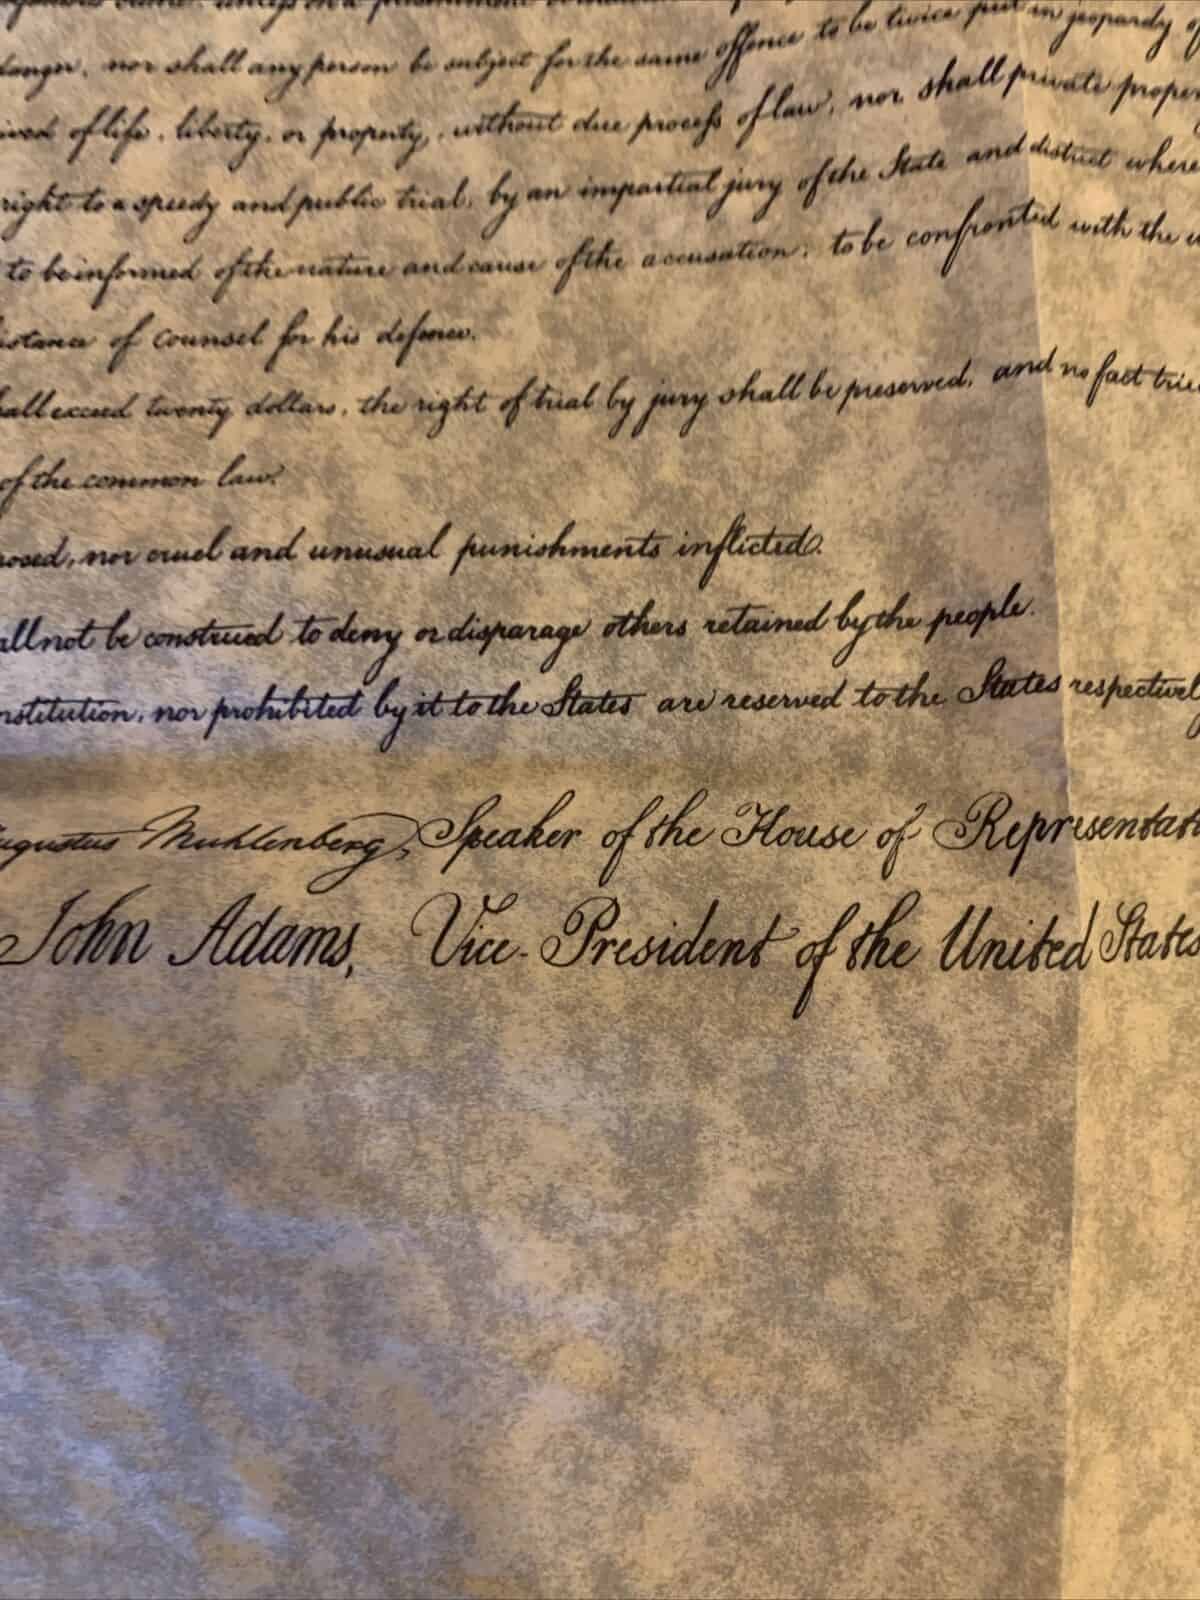 danger, nor shall any person be subject for the same offence to be twice put in jeopardy of
ived of life, liberty, or property, without due process of law, nor shall private proper
right to a speedy and public trial, by an impartial jury of the State and district where
to be informed of the nature and cause of the accusation; to be confronted with the w
istance of counsel for his defence.
hall exceed twenty dollars, the right of trial by jury shall be preserved, and no fact tried
of the common law.
posed, nor cruel and unusual punishments inflicted.
all not be construed to deny or disparage others retained by the people.
nstitution, nor prohibited by it to the States are reserved to the States respectively
Augustus Muhlenberg, Speaker of the House of Representati
John Adams, Vice-President of the United States